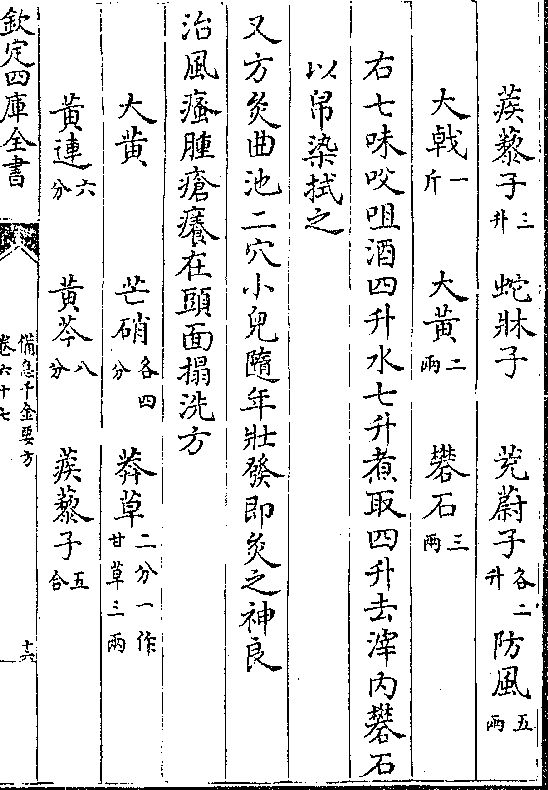 蒺藜子三升 蛇牀子 茺蔚子各二升 防風五兩
大戟一斤 大黄二兩 礬石三兩
右七味㕮咀酒四升水七升煮取四升去滓内礬石
以帛染拭之
又方灸曲池二穴小兒隨年壯發即灸之神良
治風瘙腫瘡癢在頭面搨洗方
大黄 芒硝各四分 莽草二分一作甘草三兩
黄連六分 黄芩八分 蒺藜子五合
欽定四庫全書
備急千金要方
卷六十七
十六